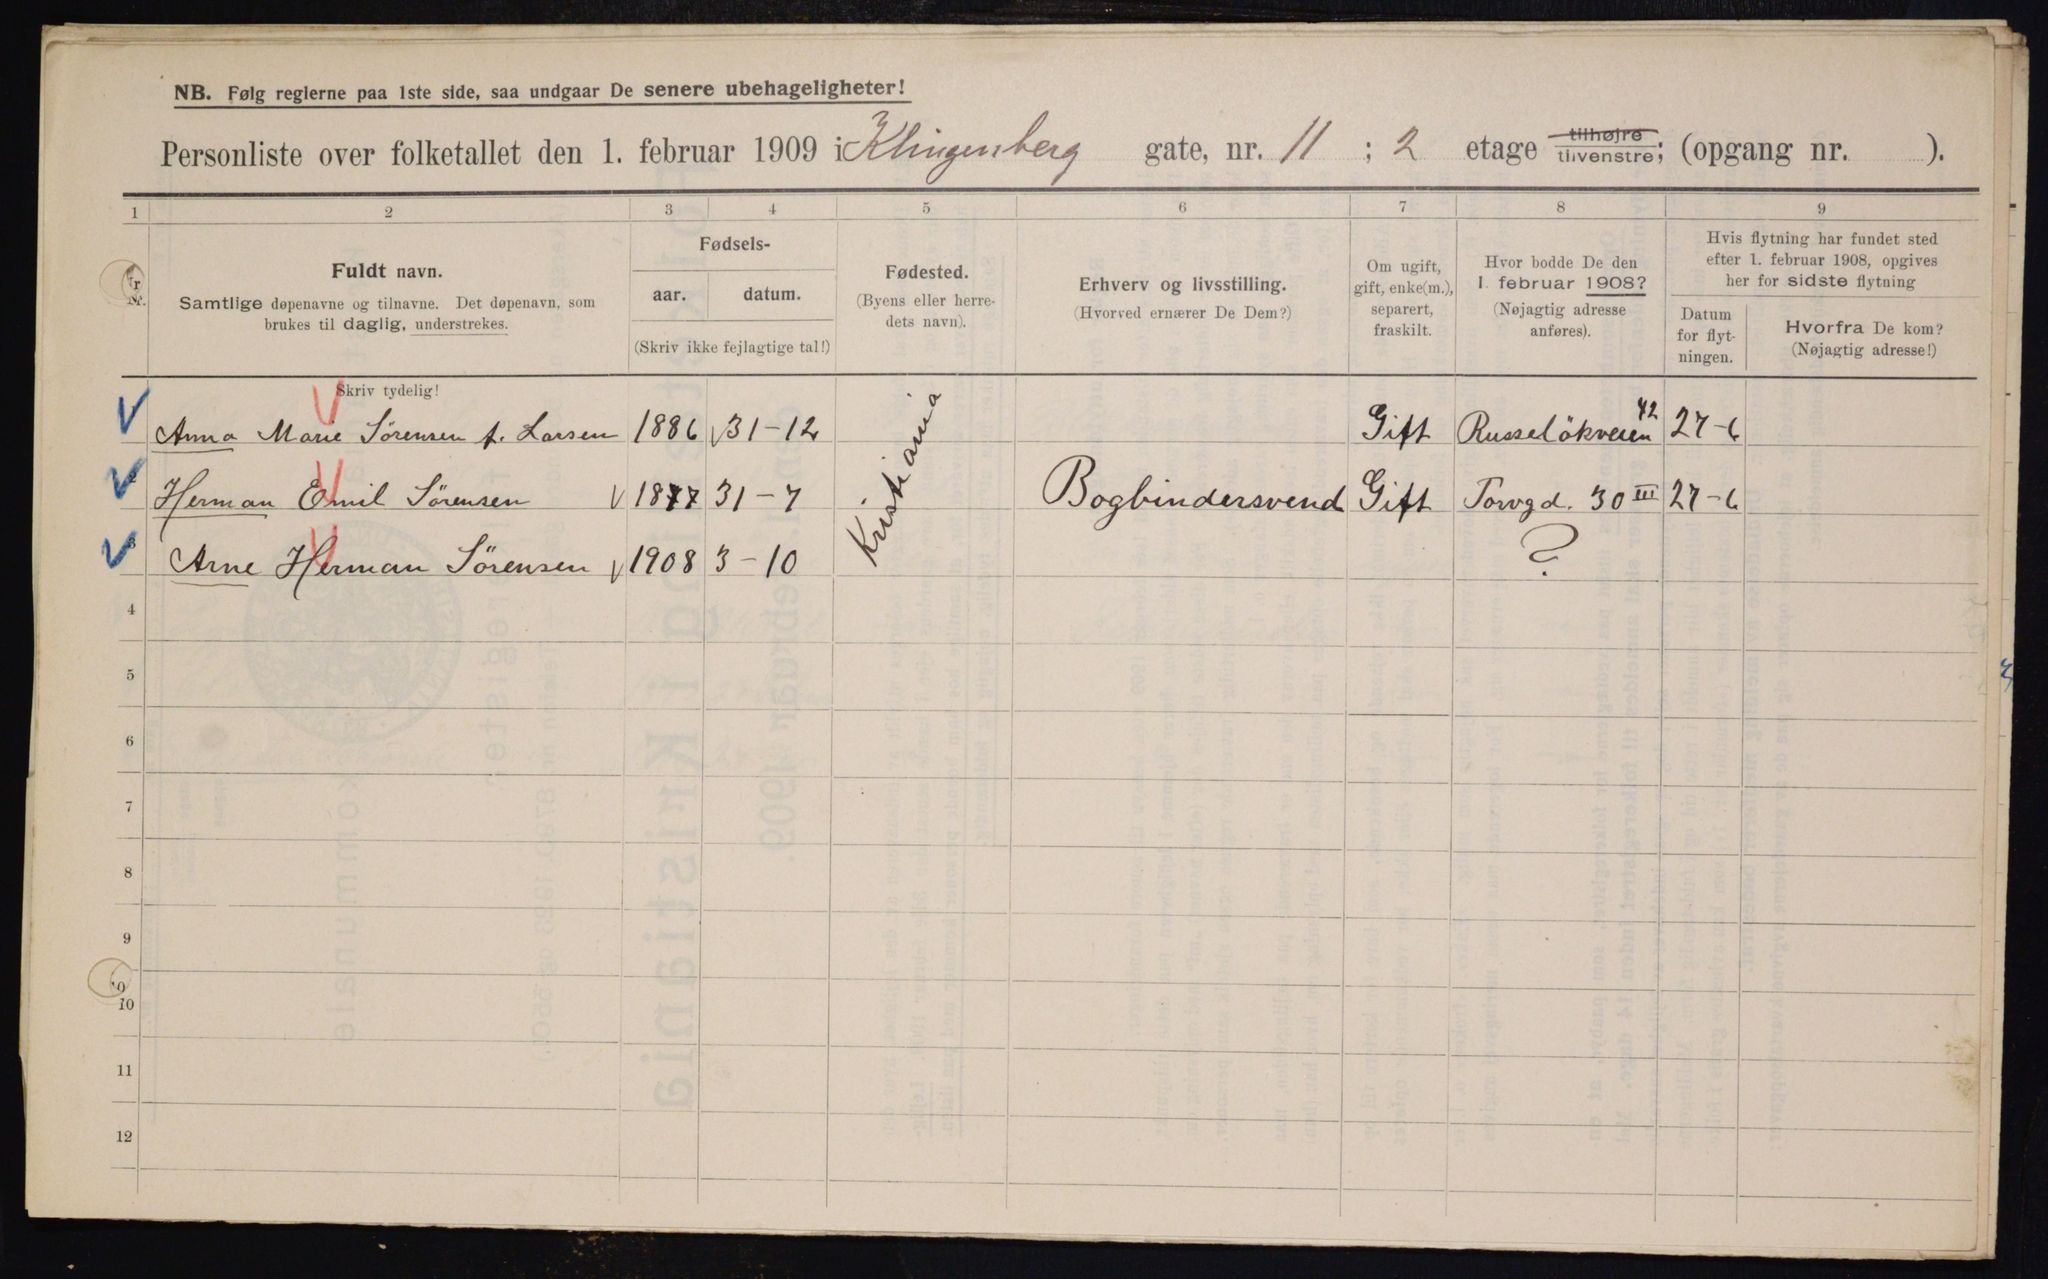 NB. Følg reglerne paa 1ste side, saa undgaar De senere ubehageligheter!
Personliste over folketallet den 1. februar 1909 i Klingenberg gate, nr. 11 ; 2 etage tilhøjre tilvenstre; (opgang nr. ).
1 2 3 4 5 6 7 8 9
Nr.
Fuldt navn.
Samtlige døpenavne og tilnavne. Det døpenavn, som
brukes til daglig, understrekes.
Fødsels-
aar. datum.
(Skriv ikke fejlagtige tal!)
Fødested.
(Byens eller herre-
dets navn).
Erhverv og livsstilling.
(Hvorved ernærer De Dem?)
Om ugift,
gift, enke(m.),
separert,
fraskilt.
Hvor bodde De den
1. februar 1908?
(Nøjagtig adresse
anføres).
Hvis flytning har fundet sted
efter 1. februar 1908, opgives
her for sidste flytning
Datum
for flyt-
ningen.
Hvorfra De kom?
(Nøjagtig adresse!)
Skriv tydelig!
Anna Marie Sørensen f. Larsen 1886 31-12 Gift Russeløkveien 42 27-6
Herman Emil Sørensen 1877 31-7 Kristiania Bogbindersvend Gift Torvgd. 30 III 27-6
3 Arne Herman Sørensen 1908 3-10 ?
4
5
6
7
8
9
10
11
12